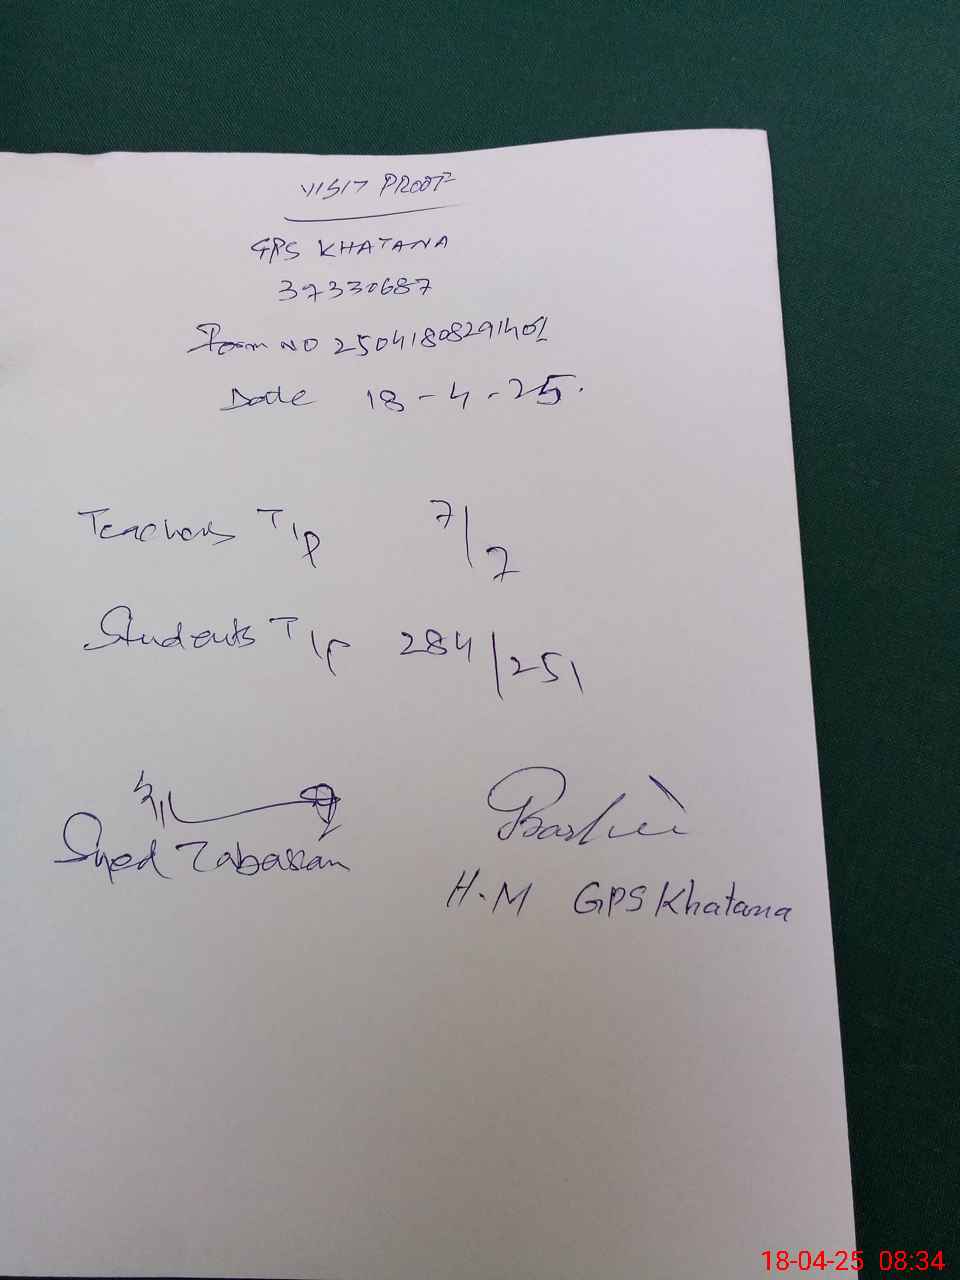 VISIT PROOF
GPS KHATANA
37330687
Form NO 25041808291401
Date 18-4-25.
Teachers T/P 7/7
Students T/P 284/251
Syed Tabassam
Bashir
H.M GPS Khatana
18-04-25 08:34